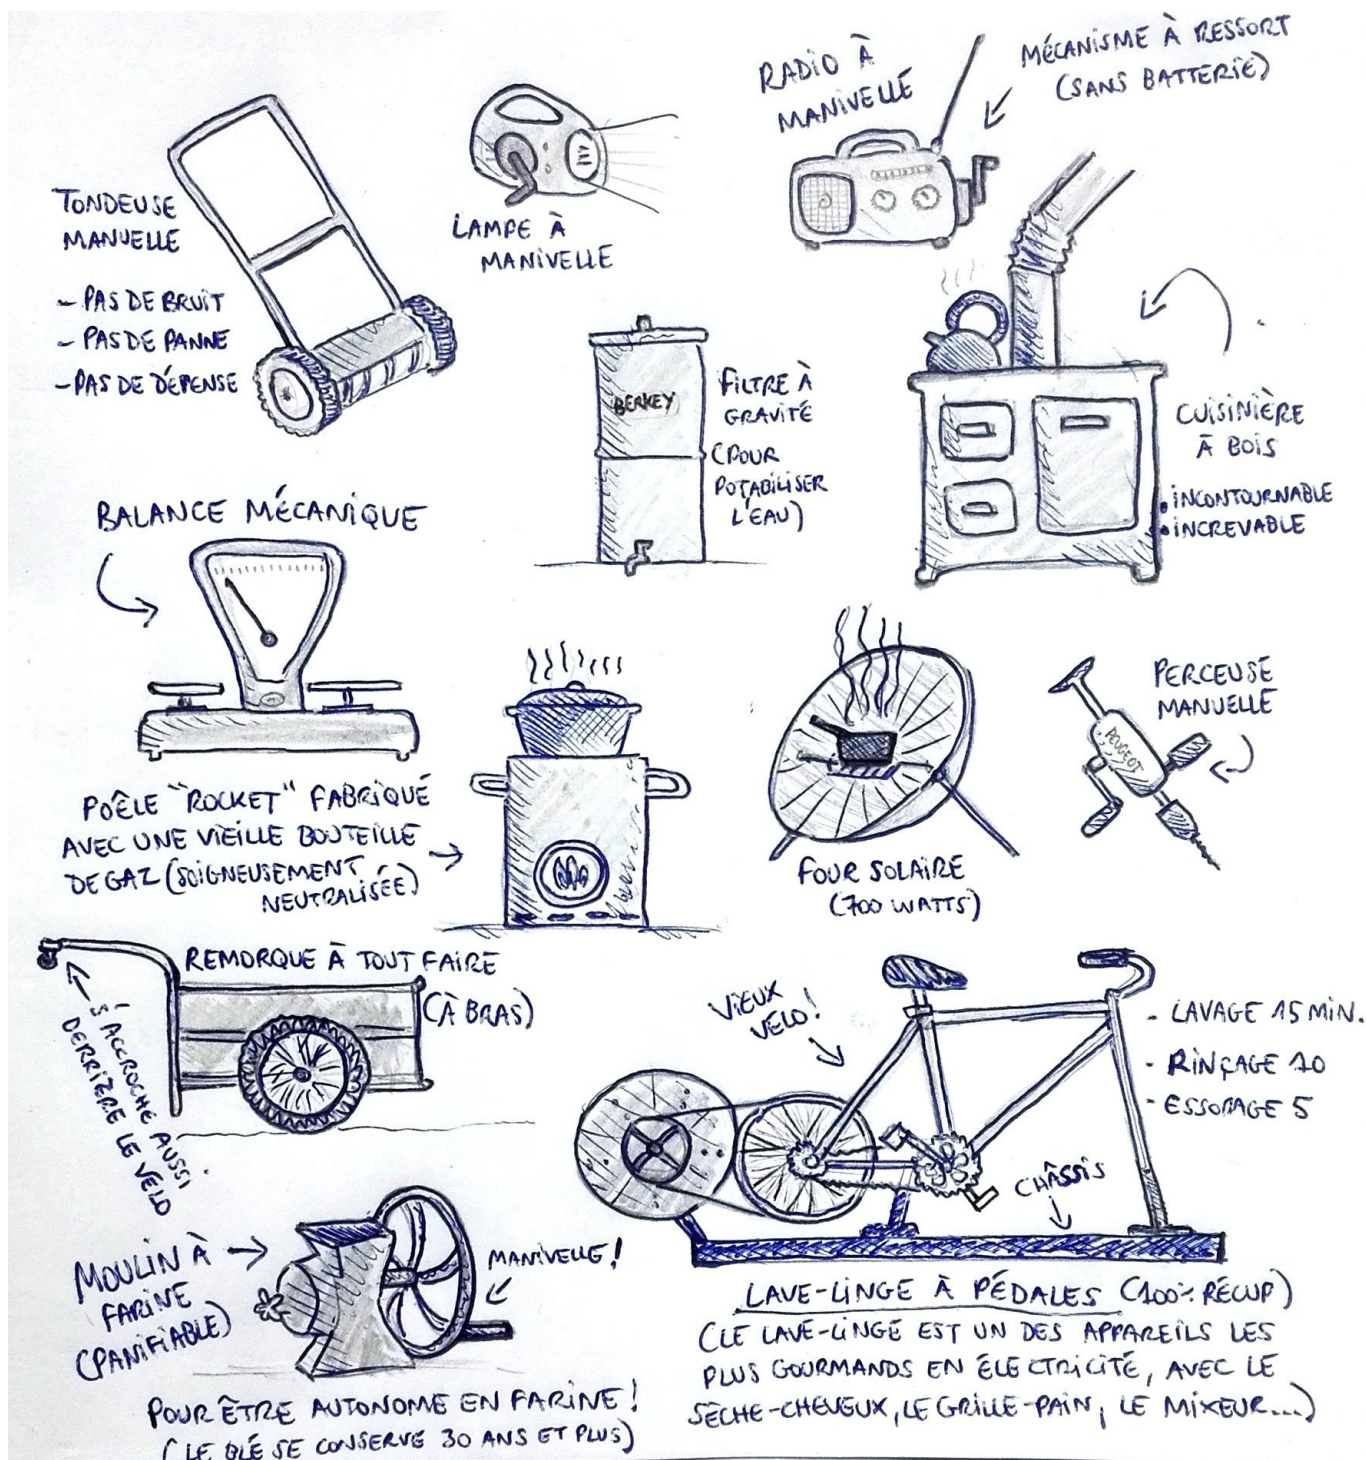 RADIO À
MANIVELLE
MÉCANISME À RESSORT
(SANS BATTERIE)
TONDEUSE
MANUELLE
- PAS DE BRUIT
- PAS DE PANNE
- PAS DE DÉPENSE
LAMPE À
MANIVELLE
BERKEY
FILTRE À
GRAVITÉ
(POUR
POTABILISER
L'EAU)
CUISINIÈRE
À BOIS
• INCONTOURNABLE
• INCREVABLE
BALANCE MÉCANIQUE
POÊLE "ROCKET" FABRIQUÉ
AVEC UNE VIEILLE BOUTEILLE
DE GAZ (SOIGNEUSEMENT
NEUTRALISÉE)
FOUR SOLAIRE
(700 WATTS)
PERCEUSE
MANUELLE
PEUGEOT
REMORQUE À TOUT FAIRE
(À BRAS)
S'ACCROCHE AUSSI
DERRIÈRE LE VÉLO
VIEUX
VÉLO!
- LAVAGE 15 MIN.
- RINÇAGE 10
- ESSORAGE 5
CHÂSSIS
MOULIN À
FARINE
(PANIFIABLE)
MANIVELLE!
POUR ÊTRE AUTONOME EN FARINE!
(LE BLÉ SE CONSERVE 30 ANS ET PLUS)
LAVE-LINGE À PÉDALES (100% RÉCUP)
(LE LAVE-LINGE EST UN DES APPAREILS LES
PLUS GOURMANDS EN ÉLECTRICITÉ, AVEC LE
SÈCHE-CHEVEUX, LE GRILLE-PAIN, LE MIXEUR...)